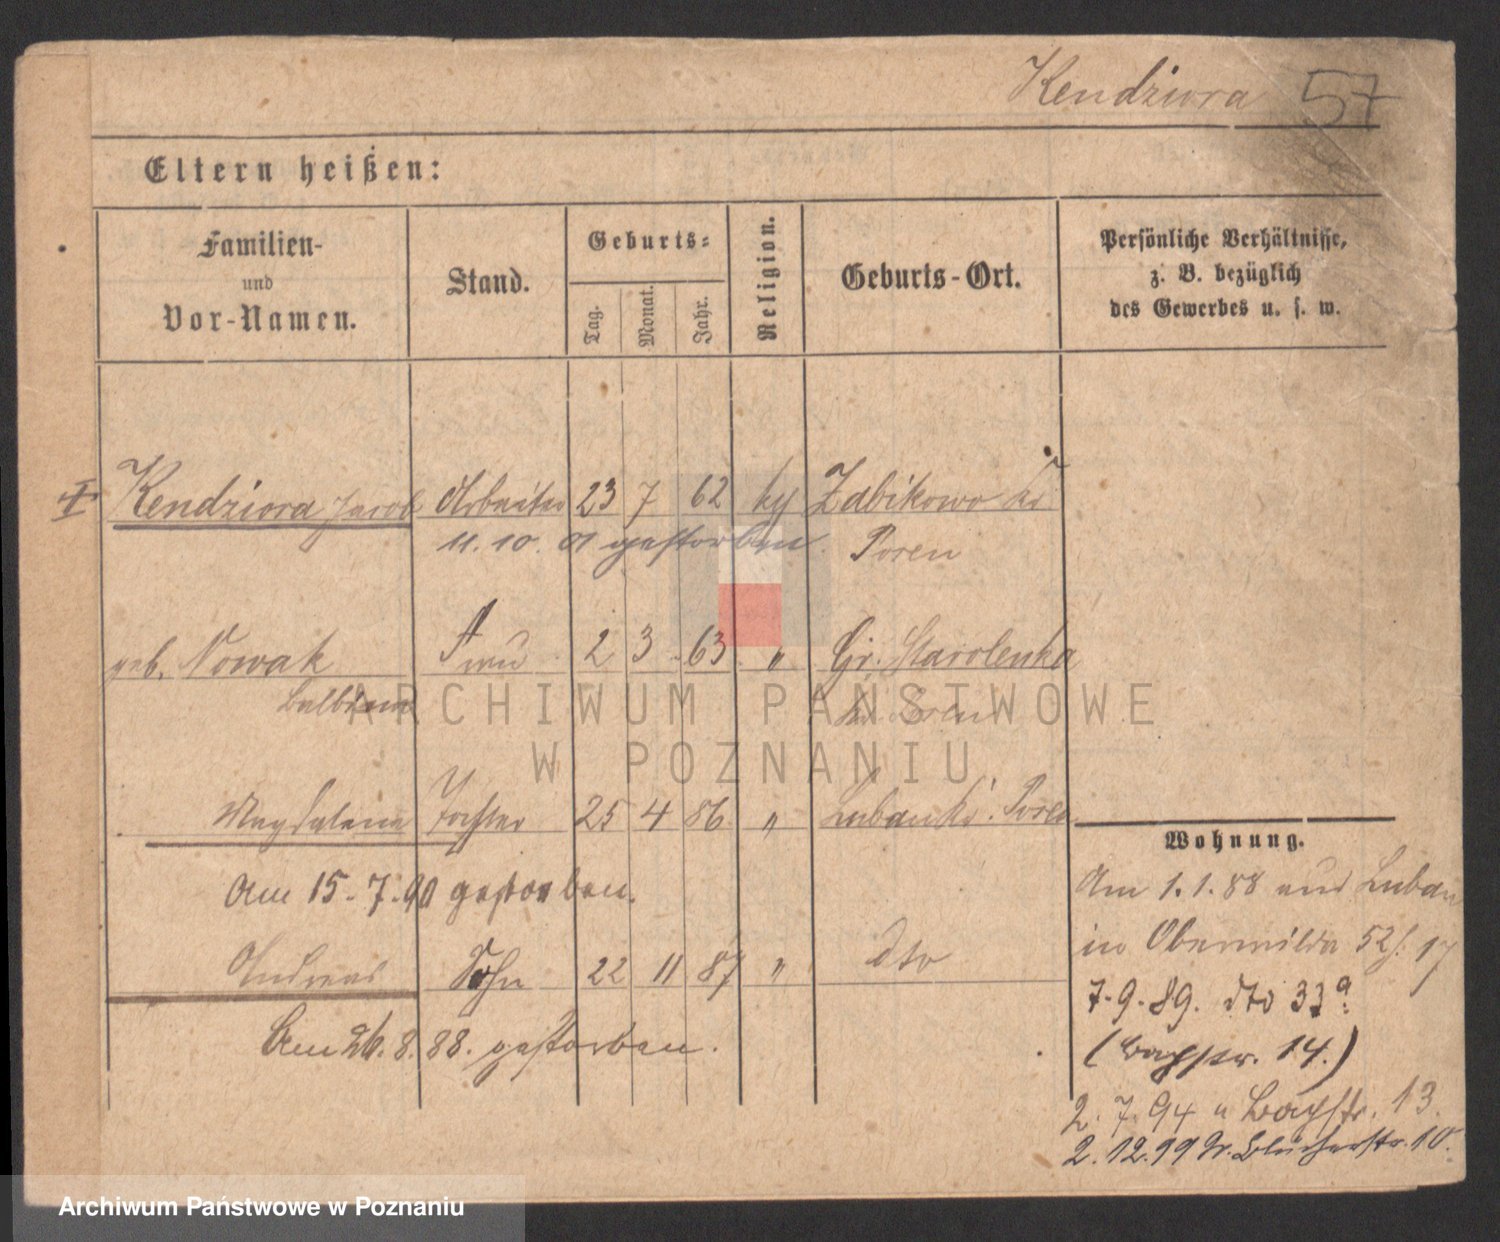 Kendziora 57
Eltern heißen:
Familien-
und
Vor-Namen.
Stand.
Geburts-
Tag.
Monat.
Jahr.
Religion.
Geburts-Ort.
Persönliche Verhältnisse,
z. B. bezüglich
des Gewerbes u. s. w.
I Kendziora Jacob Arbeiter 23 7 62 Zabikowo Kr
11. 10. 01 gestorben. Posen
geb. Nowak Frau 2 3 63 " Gr. Starolenka
Balbina Kr. Posen
Magdalena Tochter 25 4 86 " Luban Kr. Posen
Am 15.7.90 gestorben.
Andreas Sohn 22 11 87 " dto
Am 26.8.88. gestorben.
Wohnung.
Am 1.1.88 aus Luban
in Oberwilda 52 17
7.9.89. dto 33a
(Bachstr. 14.)
2.7.94 n Bachstr. 13.
2.12.99 Blücherstr. 10.
ARCHIWUM PAŃSTWOWE
W POZNANIU
Archiwum Państwowe w Poznaniu